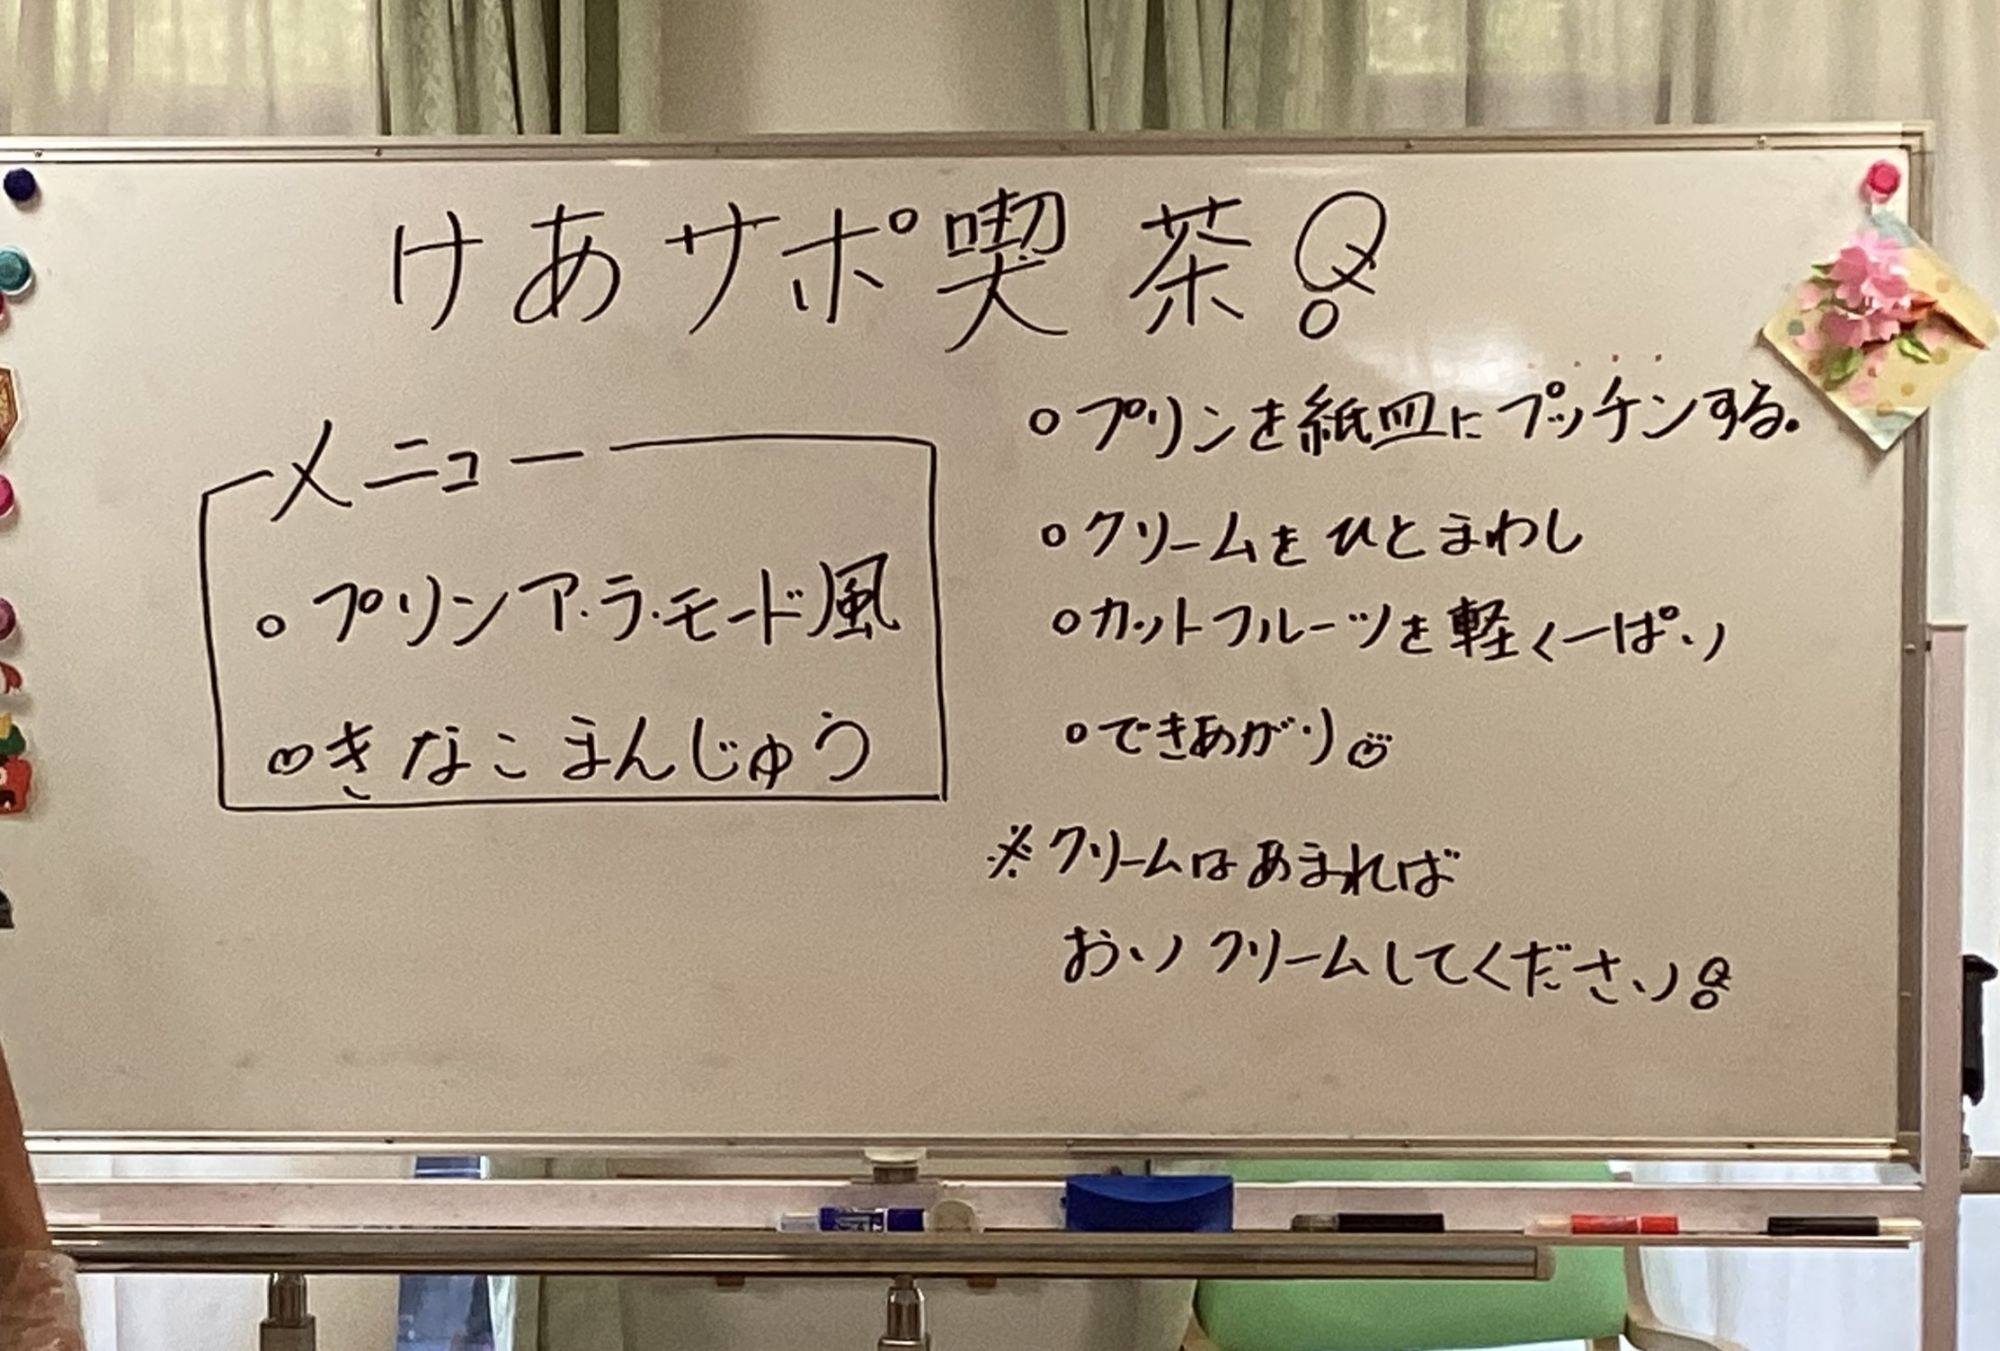 けあサポ喫茶
メニュー
○プリンア・ラ・モード風
○きなこまんじゅう
○プリンを紙皿にプッチンする.
○クリームをひとまわし
○カットフルーツを軽く一ぱい
○できあがり
※クリームはあまれば
おいクリームしてください